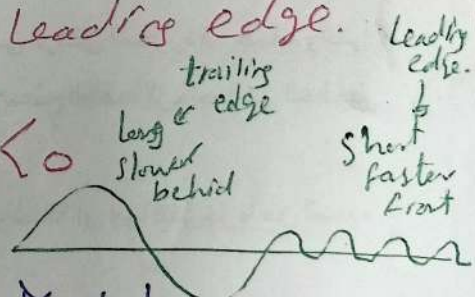 Leading edge.
trailing
edge
Leading
edge.
< 0
long &
slower
behid
Short
faster
front